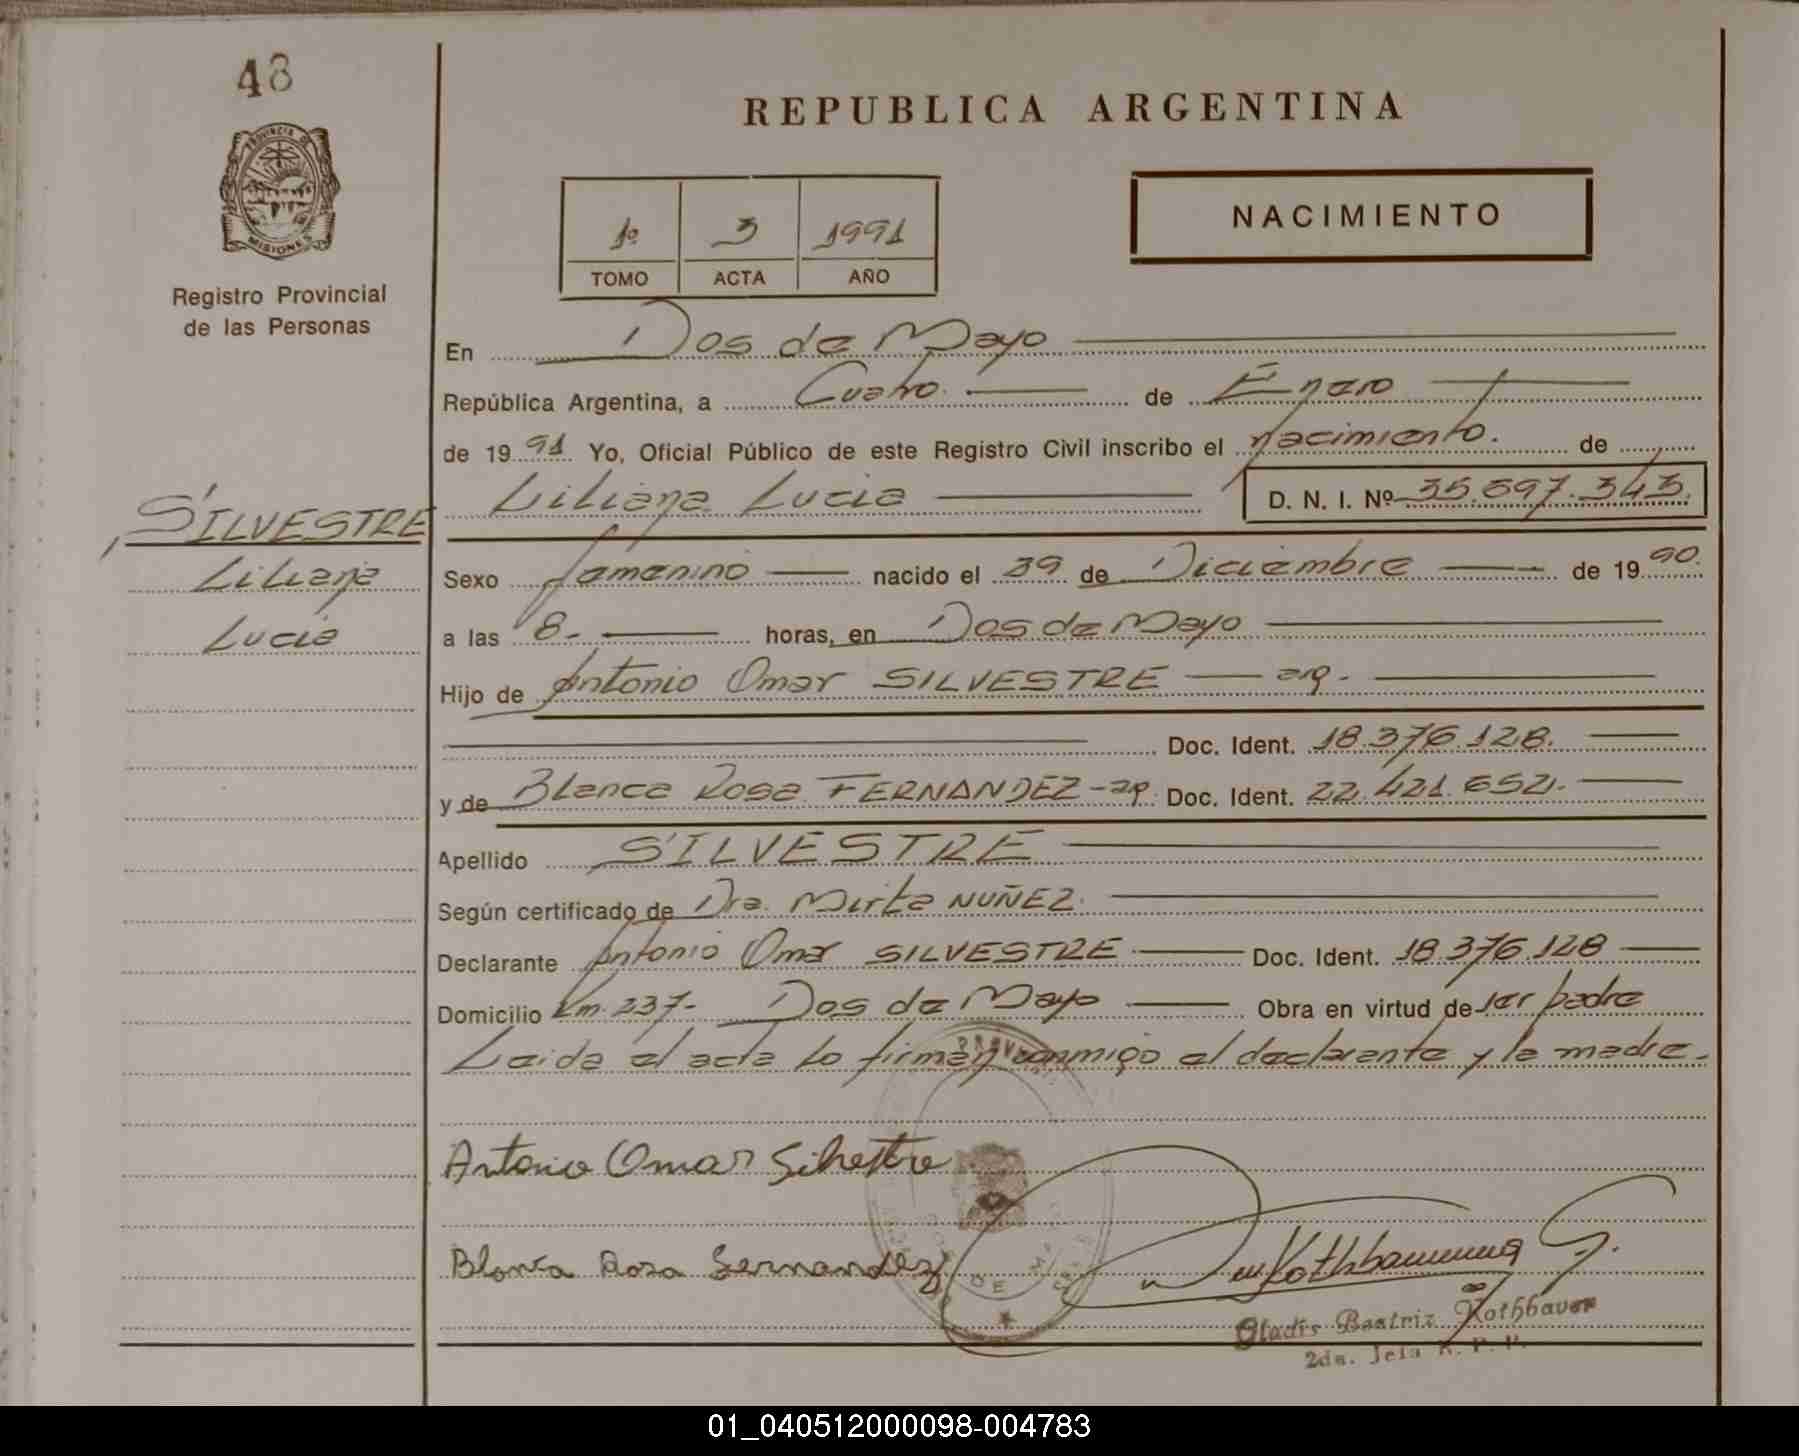 48
REPUBLICA ARGENTINA
PROVINCIA DE
MISIONES
Registro Provincial
de las Personas
1º 3 1991
TOMO ACTA AÑO
NACIMIENTO
En Dos de Mayo
República Argentina, a Cuatro de Enero
de 1991 Yo, Oficial Público de este Registro Civil inscribo el nacimiento. de
Liliana Lucia D. N. I. Nº 35.697.343.
SILVESTRE
Liliana
Lucia
Sexo femenino nacido el 29 de Diciembre de 1990.
a las 8.- horas, en Dos de Mayo
Hijo de Antonio Omar SILVESTRE arg.
Doc. Ident. 18.376.128.
y de Blanca Rosa FERNANDEZ - arg. Doc. Ident. 22.421.652.
Apellido SILVESTRE
Según certificado de Dra. Mirta NUÑEZ.
Declarante Antonio Omar SILVESTRE Doc. Ident. 18.376.128
Domicilio Km. 237- Dos de Mayo Obra en virtud de ser padre
Leida el acta lo firman conmigo el declarante y la madre.
Antonio Omar Silvestre
Blanca Rosa Fernandez
Gladis Beatriz Rothbauer
2da. Jefa R. P. P.
01_040512000098-004783